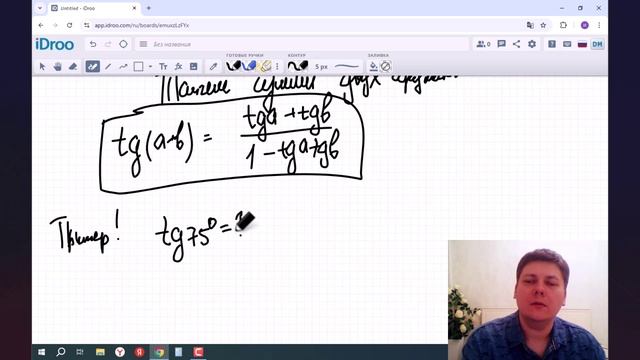 Untitled - iDroo
app.idroo.com/ru/boards/emuxzLzFYx
iDroo
Без названия
0
DM
ГОТОВЫЕ РУЧКИ
КОНТУР
ЗАЛИВКА
5 px
двух
tg(a+b) = tga + tgb / 1 - tga tgb
Пример! tg 75° = ?